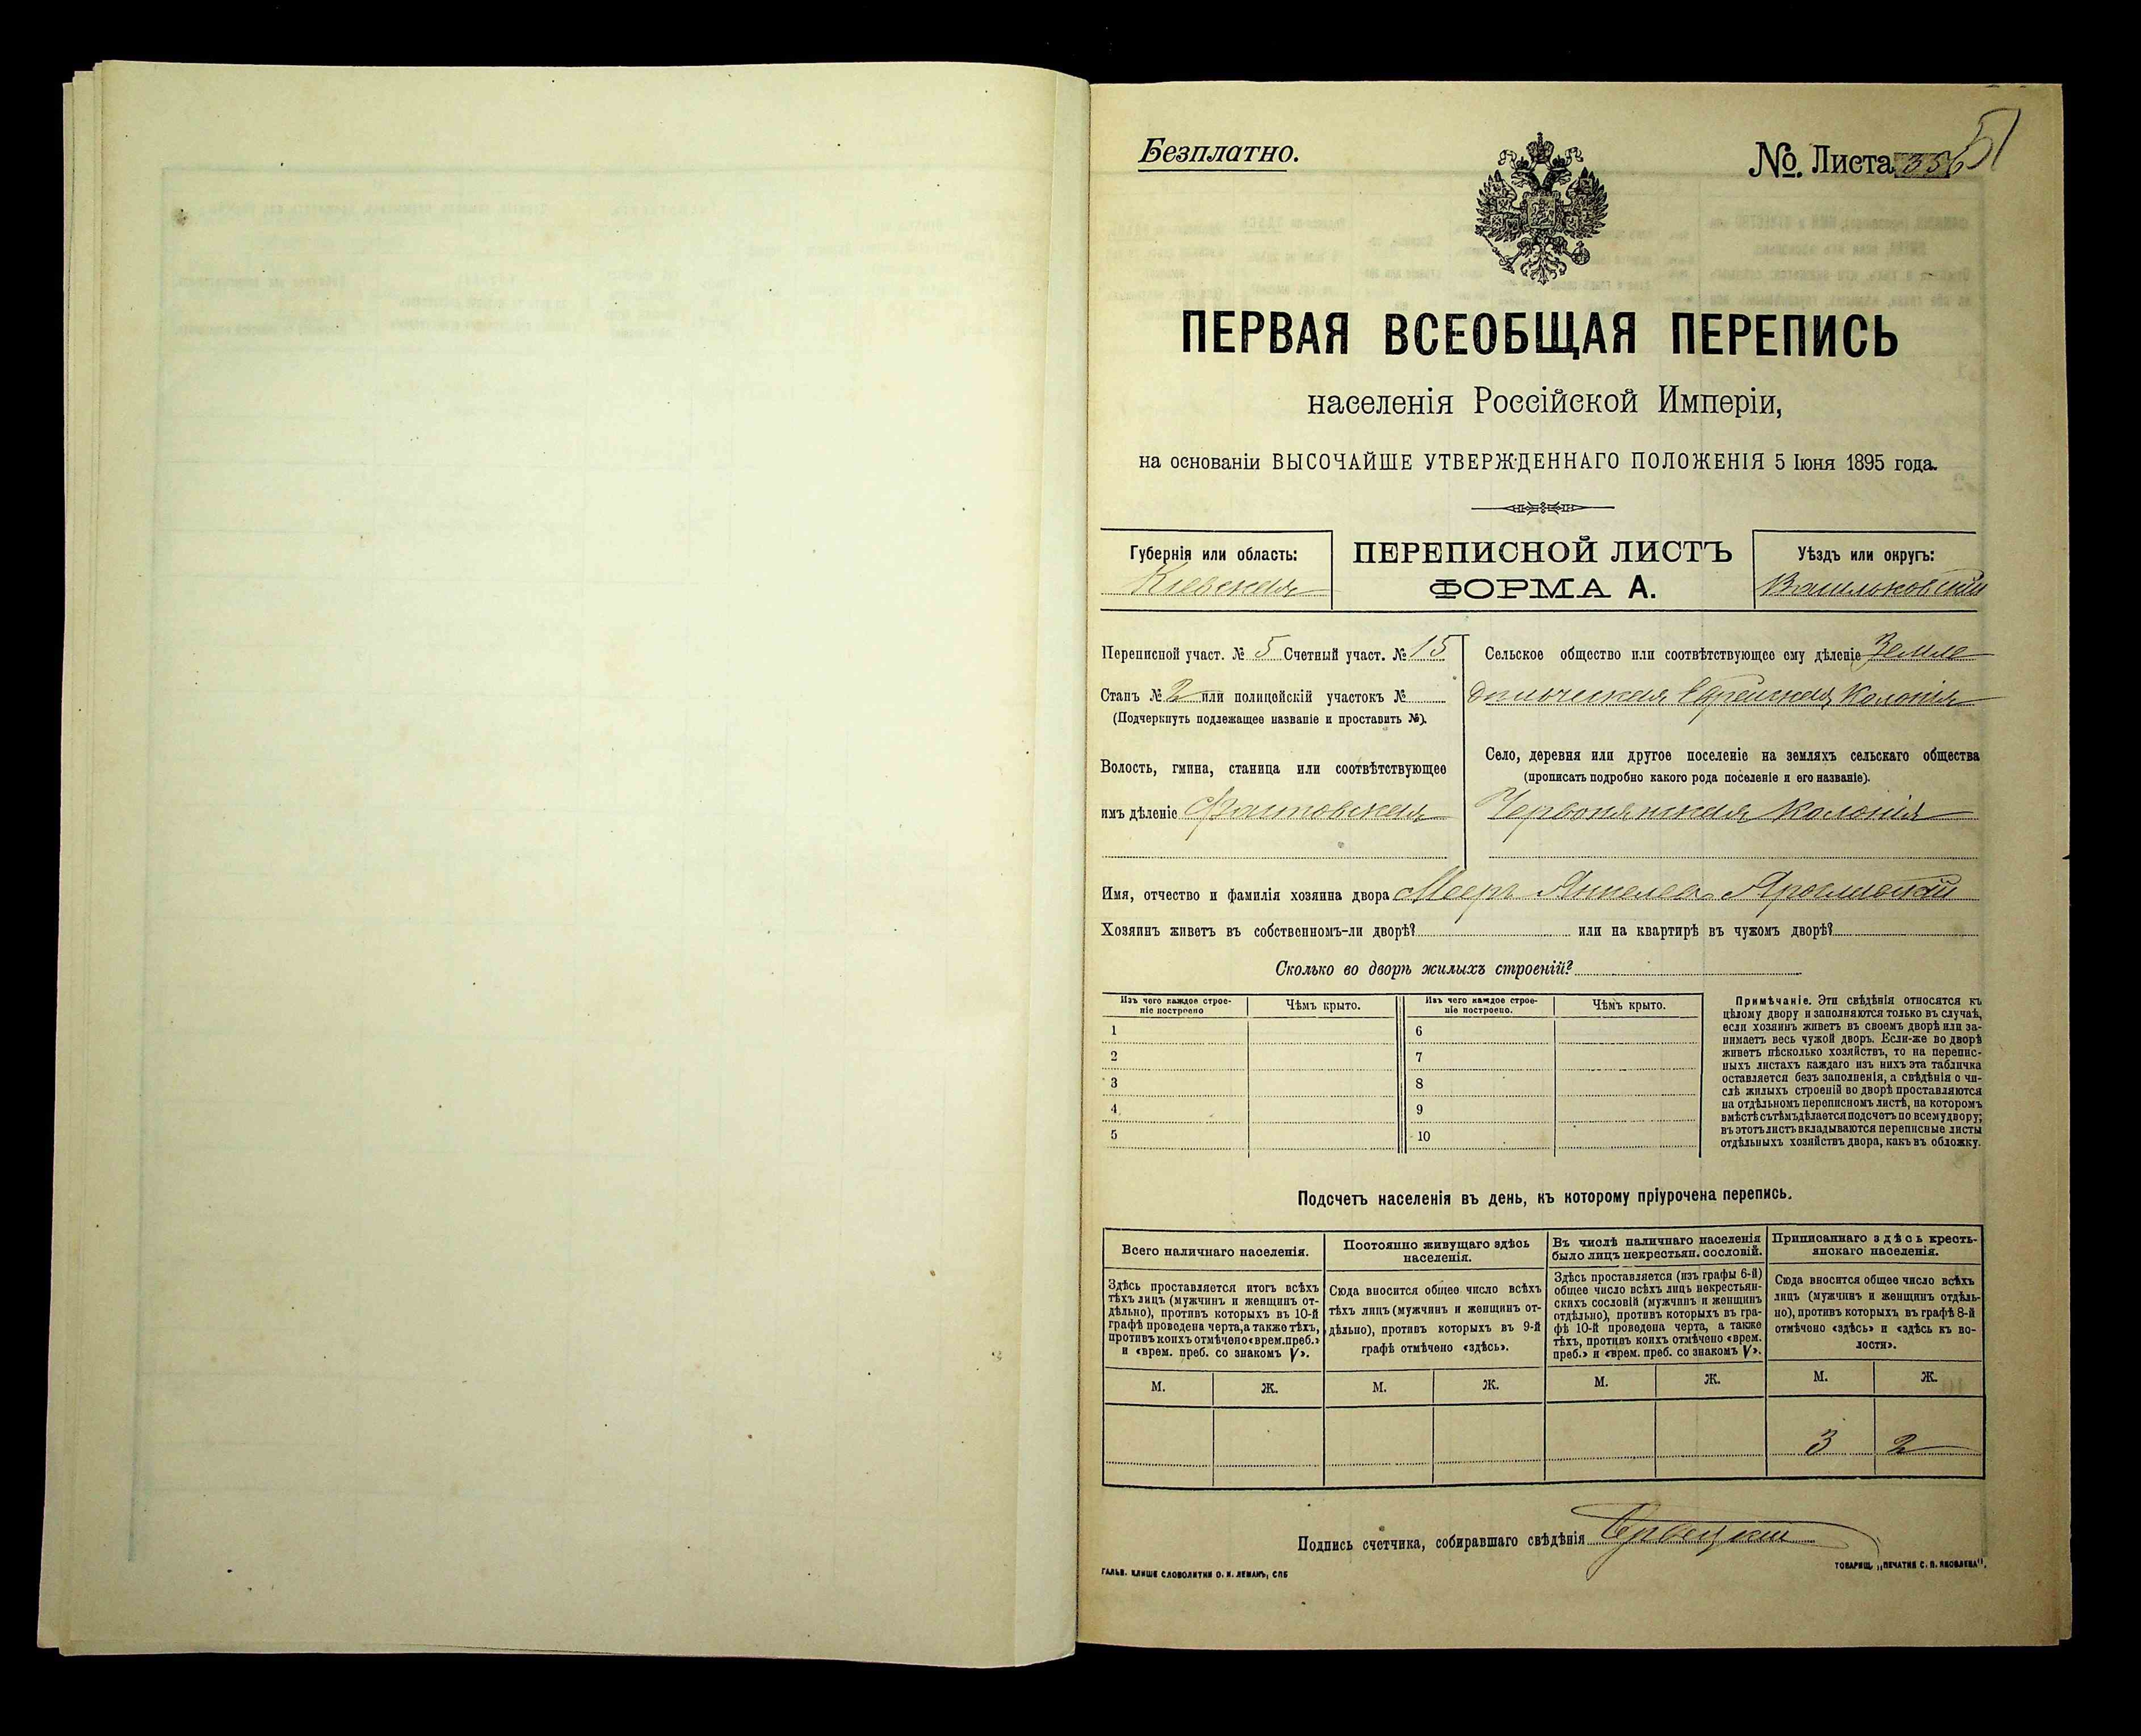 Безплатно.
№. Листа 356
51
ПЕРВАЯ ВСЕОБЩАЯ ПЕРЕПИСЬ
населенія Россійской Имперіи,
на основаніи ВЫСОЧАЙШЕ УТВЕРЖДЕННАГО ПОЛОЖЕНІЯ 5 Іюня 1895 года.
Губернія или область:
Кіевская
ПЕРЕПИСНОЙ ЛИСТЪ
ФОРМА А.
Уѣздъ или округъ:
Васильковскій
Переписной участ. № 5 Счетный участ. № 15
Станъ № 2 или полицейскій участокъ №
(Подчеркнуть подлежащее названіе и проставить №).
Волость, гмина, станица или соотвѣтствующее
имъ дѣленіе Фастовская
Сельское общество или соотвѣтствующее ему дѣленіе Земле
дѣльческая Еврейская Колонія
Село, деревня или другое поселеніе на земляхъ сельскаго общества
(прописать подробно какого рода поселеніе и его названіе).
Червонянская колонія
Имя, отчество и фамилія хозяина двора Мееръ Янкелев
Хозяинъ живетъ въ собственномъ-ли дворѣ? или на квартирѣ въ чужомъ дворѣ?
Сколько во дворѣ жилыхъ строеній?
Изъ чего каждое строе-
ніе построено
Чѣмъ крыто.
Изъ чего каждое строе-
ніе построено.
Чѣмъ крыто.
1 6
2 7
3 8
4 9
5 10
Примѣчаніе. Эти свѣдѣнія относятся къ
цѣлому двору и заполняются только въ случаѣ,
если хозяинъ живетъ въ своемъ дворѣ или за-
нимаетъ весь чужой дворъ. Если-же во дворѣ
живетъ нѣсколько хозяйствъ, то на перепис-
ныхъ листахъ каждаго изъ нихъ эта табличка
оставляется безъ заполненія, а свѣдѣнія о чи-
слѣ жилыхъ строеній во дворѣ проставляются
на отдѣльномъ переписномъ листѣ, на которомъ
вмѣстѣ съ тѣмъ дѣлается подсчетъ по всему двору;
въ этотъ листъ вкладываются переписные листы
отдѣльныхъ хозяйствъ двора, какъ въ обложку.
Подсчетъ населенія въ день, къ которому пріурочена перепись.
Всего наличнаго населенія.
Здѣсь проставляется итогъ всѣхъ
тѣхъ лицъ (мужчинъ и женщинъ от-
дѣльно), противъ которыхъ въ 10-й
графѣ проведена черта, а также тѣхъ,
противъ коихъ отмѣчено «врем. преб.»
и «врем. преб. со знакомъ V».
Постоянно живущаго здѣсь
населенія.
Сюда вносится общее число всѣхъ
тѣхъ лицъ (мужчинъ и женщинъ от-
дѣльно), противъ которыхъ въ 9-й
графѣ отмѣчено «здѣсь».
Въ числѣ наличнаго населенія
было лицъ некрестьян. сословій.
Здѣсь проставляется (изъ графы 6-й)
общее число всѣхъ лицъ некрестьян-
скихъ сословій (мужчинъ и женщинъ
отдѣльно), противъ которыхъ въ гра-
фѣ 10-й проведена черта, а также
тѣхъ, противъ коихъ отмѣчено «врем.
преб.» и «врем. преб. со знакомъ V».
Приписаннаго здѣсь кресть-
янскаго населенія.
Сюда вносится общее число всѣхъ
лицъ (мужчинъ и женщинъ отдѣль-
но), противъ которыхъ въ графѣ 8-й
отмѣчено «здѣсь» и «здѣсь къ во-
лости».
М. Ж. М. Ж. М. Ж. М. Ж.
3 2
Подпись счетчика, собиравшаго свѣдѣнія
ГАЛЬВ. КЛИШЕ СЛОВОЛИТНИ О. И. ЛЕМАНЪ, СПБ
ТОВАРИЩ. „ПЕЧАТНИ С. П. ЯКОВЛЕВА".